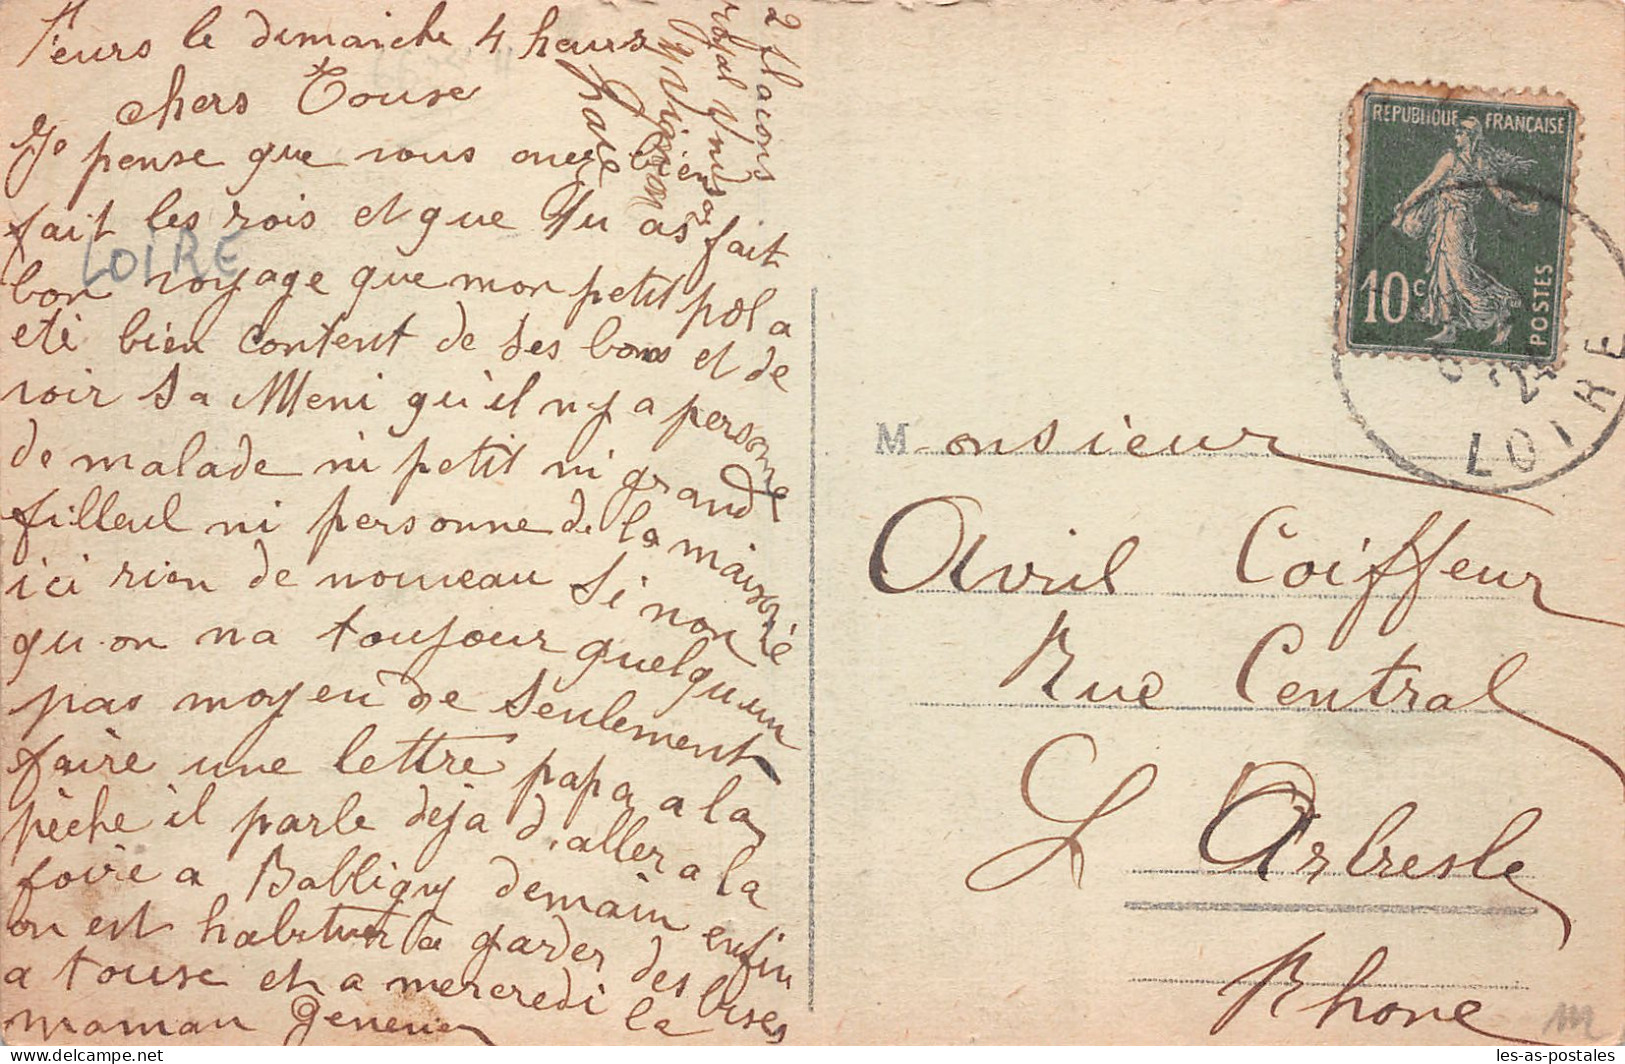 Feurs le dimanche 4 heurs
chers Touse
Je pense que vous avez bien
fait les rois et que Tu as fait
bon voyage que mon petit pol a
eté bien content de ses bons et de
voir sa Meni qu'il n-y a personne
de malade ni petit ni grand
filleul ni personne de la maisonné
ici rien de nouveau si non
qu-on na toujour quelqu'un
pas moyen de seulement
faire une lettre papa a la
pèche il parle deja d'aller a la
foire a Balbigny demain enfin
on est habituer a garder des bises
a touse et a mercredi la
maman Geneve
2 flacons
royal Vnds
LOIRE
REPUBLIQUE FRANÇAISE
10c
POSTES
24
LOIRE
Monsieur
Avril Coiffeur
Rue Central
L Arbresle
Rhone
les-as-postales